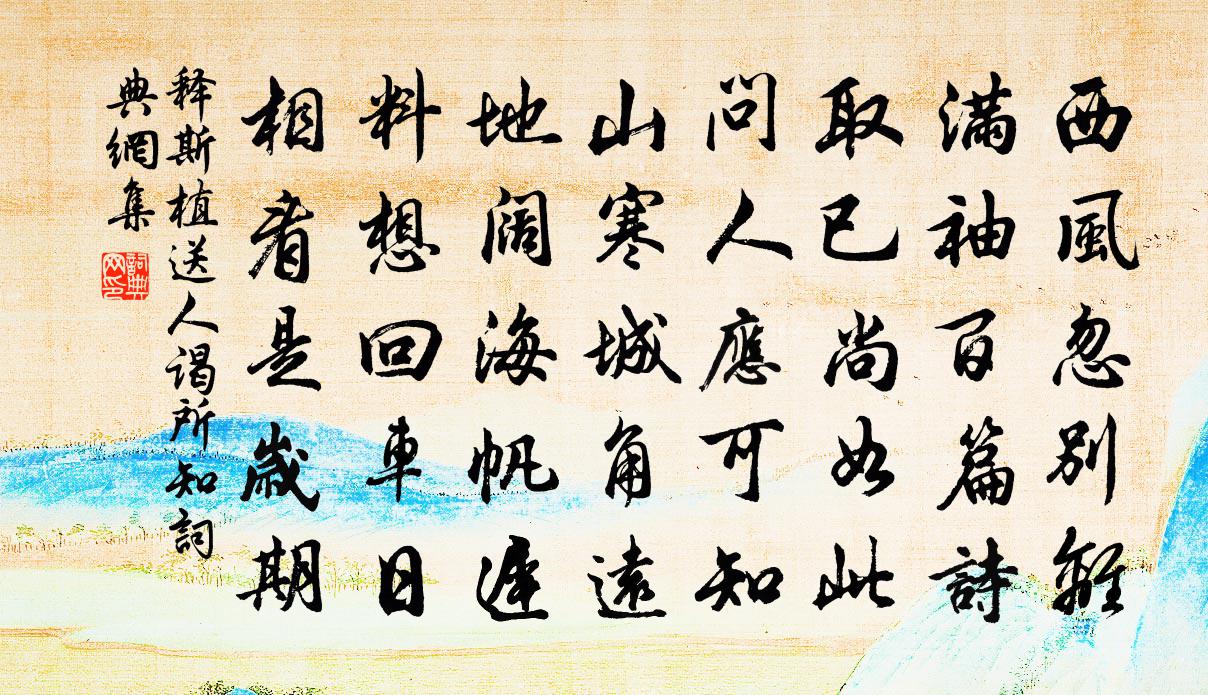 西風忽別離
滿袖百篇詩
取已尚如此
問人應可知
山寒城角遠
地闊海帆遲
料想回車日
相看是歲期
释斯植送人谒所知詞
典網集
詞典
网印